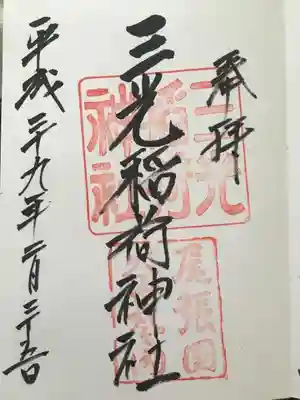 奉拝
三光稲荷神社
平成二十九年二月二十五日
三光
稲荷
神社
尾張国